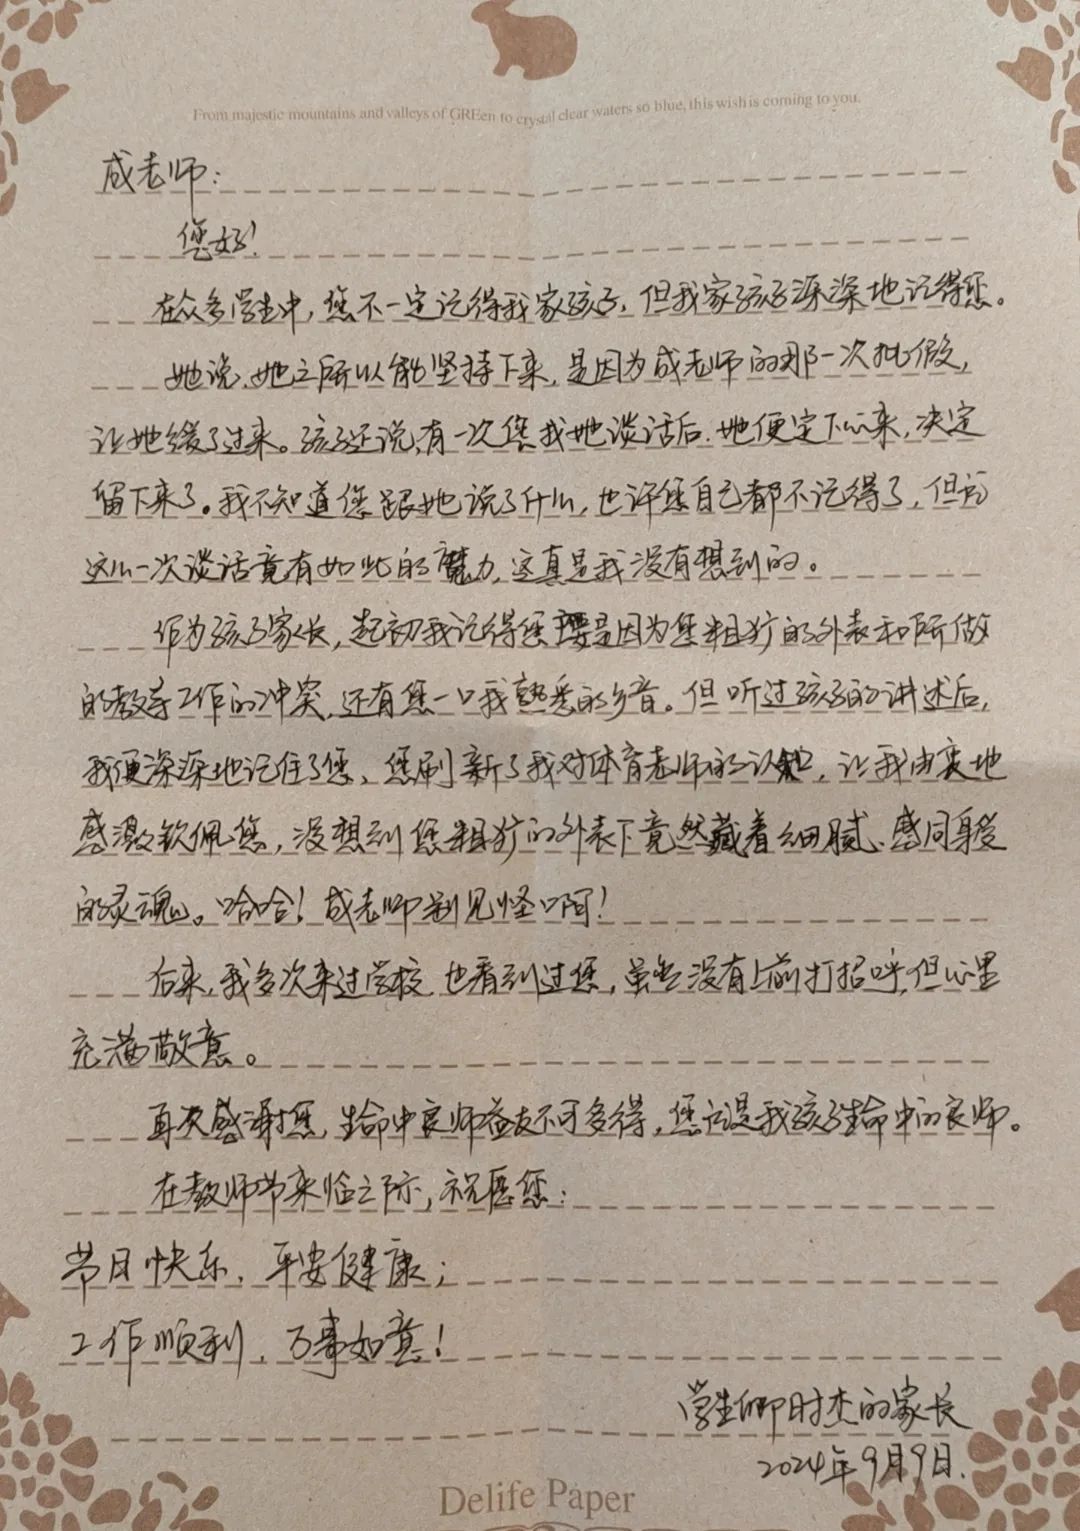 From majestic mountains and valleys of GREen to crystal clear waters so blue, this wish is coming to you.
成老师：
您好！
在众多学生中，您不一定记得我家孩子，但我家孩子深深地记得您。
她说，她之所以能坚持下来，是因为成老师的那一次批假，
让她缓了过来。孩子还说，有一次您找她谈话后，她便定下心来，决定
留下来了。我不知道您跟她说了什么，也许您自己都不记得了，但就
这么一次谈话竟有如此的魔力，这真是我没有想到的。
作为孩子家长，起初我记得您是因为您粗犷的外表和所做
的教导工作的冲突，还有您一口我熟悉的乡音。但听过孩子的讲述后，
我便深深地记住了您、您刷新了我对体育老师的认知，让我由衷地
感激钦佩您，没想到您粗犷的外表下竟然藏着细腻、感同身受
的灵魂。哈哈！成老师别见怪啊！
后来，我多次来过学校，也看到过您，虽然没有上前打招呼，但心里
充满敬意。
再次感谢您，生命中良师益友不可多得，您就是我孩子生命中的良师。
在教师节来临之际，祝愿您：
节日快乐、平安健康；
工作顺利、万事如意！
学生卿时杰的家长
2024年9月9日.
Delife Paper